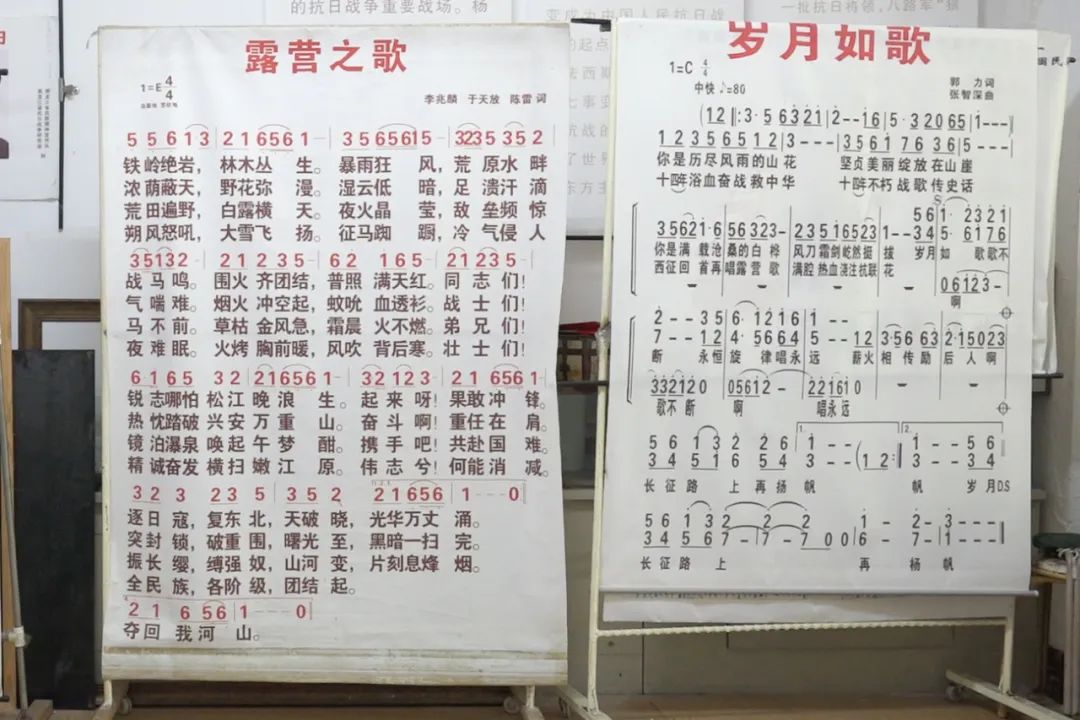 的抗日战争重要战场。杨
变成为中国人民抗日战
一批抗日将领，八路军"狼
露营之歌
1=E 4/4
李兆麟 于天放 陈雷 词
5 5 6 1 3 2 1 6561 3 5 65615 3235352
铁岭绝岩，林木丛 生。暴雨狂 风，荒原水畔
浓荫蔽天，野花弥 漫。湿云低 暗，足溃汗滴
荒田遍野，白露横 天。夜火晶 莹，敌垒频惊
朔风怒吼，大雪飞 扬。征马踟 蹰，冷气侵人
35132 21235 62 165 21235
战马鸣。围火齐团结，普照满天红。同志们！
气喘难。烟火冲空起，蚊吮血透衫。战士们！
马不前。草枯金风急，霜晨火不燃。弟兄们！
夜难眠。火烤胸前暖，风吹背后寒。壮士们！
6165 32 21656 1 32123 21 6561
锐志哪怕松江晚浪 生。起来呀！果敢冲 锋。
热忱踏破兴安万重 山。奋斗啊！重任在 肩。
镜泊瀑泉唤起午梦 酣。携手吧！共赴国 难。
精诚奋发横扫嫩江 原。伟志兮！何能消 减。
3 2 3 2 3 5 3 5 2 21656 1 — — 0
逐日寇，复东北，天破晓，光华万丈 涌。
突封锁，破重围，曙光至，黑暗一扫 完。
振长缨，缚强奴，山河变，片刻息烽 烟。
全民族，各阶级，团结起。
2 1 6 56 1 — — 0
夺回我河 山。
岁月如歌
1=C 4/4
中快 ♪=80
郭 力词
张智深曲
(12 3·56321 2--16 5·32065 1---)
1235651 2 3-- 3561 76 36 5---
你是历尽风雨的山花 坚贞美丽绽放在山崖
十四年浴血奋战救中华 十四年不朽战歌传史话
56 1· 2321
35621·6 56323- 23516523 1--35 5·6176
你是满 载沧桑的白桦 风刀霜剑屹然挺 拔 岁月如 歌歌不
西征回 首再唱露营歌 满腔热血浇注抗联 花
06123-
啊
2--35 6·1216 1--
7--12 4·5664 5--12 3·5663 2·15023
断 永恒旋 律唱永 远 薪火相传励后人啊
3321 20 05612- 221610
歌不断 啊 唱永远
5 6 1 3 2 2 6 1 - - 1 - - 5 6
3 4 5 1 6 5 4 3 - - (12: 3 - - 3 4
长征路 上再扬帆 帆 岁月D.S
5 6 1 3 2 2 2 1 - 2 - 3---
3 4 5 6 7 - 7 - 7 00 6 - 7 - 1---
长征路 上 再 杨 帆